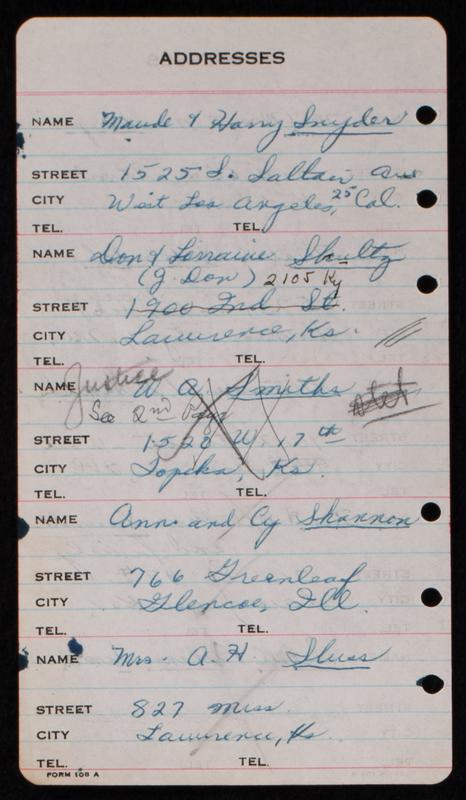 ADDRESSES
NAME Maude & Harry Snyder
STREET 1525 S. Saltair Ave
CITY West Los Angeles, 25 Cal.
TEL. TEL.
NAME Don & Lorraine Shultz
(J. Don) 2105 Ky
STREET 1900 Ind. St.
CITY Lawrence, Ks.
TEL. TEL.
Justice
NAME W A Smiths stet
See 2nd Page
STREET 1520 W. 17th
CITY Topeka, Ks.
TEL. TEL.
NAME Ann and Cy Shannon
STREET 766 Greenleaf
CITY Glencoe, Ill.
TEL. TEL.
NAME Mrs. A. H. Sluss
STREET 827 Miss.
CITY Lawrence, Ks
TEL. TEL.
FORM 108 A